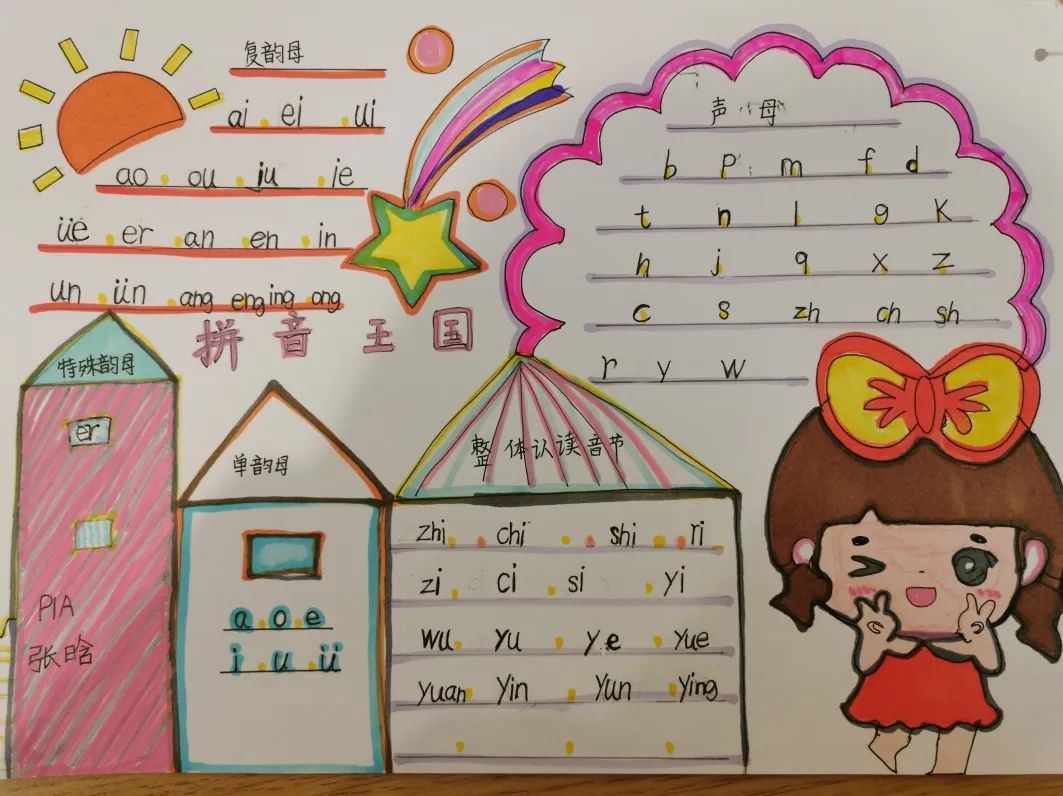 复韵母
ai ei ui
ao ou iu ie
üe er an en in
un ün ang eng ing ong
拼音王国
声母
b p m f d
t n l g k
h j q x z
c s zh ch sh
r y w
特殊韵母
er
PIA
张晗
单韵母
a o e
i u ü
整体认读音节
zhi chi shi ri
zi ci si yi
wu yu ye yue
yuan yin yun ying